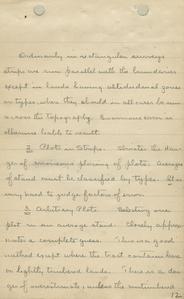 Ordinarily in rectangular surveys
strips are run parallel with the boundaries
except in lands having well defined
or types, when they should in all cases be run
across the topography. Enormous error is
otherwise liable to result.
2. Plots in Strips. Obviates the dan-
ger of erroneous placing of plots. Averages
of stand must be classified by types.
very hard to judge factors of error.
3. Arbitrary Plots. Selecting one
plot in an average stand. Closely approx-
imates a complete guess. This is a good
method except where the tract contains bare
or lightly timbered lands. There is a dan-
ger of overestimate, unless the untimbered
12